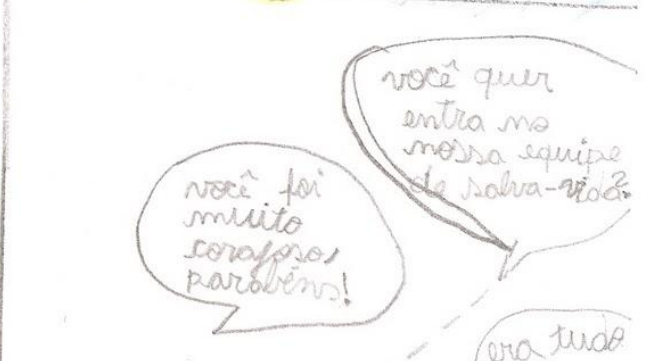 você quer
entra no
nossa equipe
de salva-vida?
você foi
muito
corajoso,
parabéns!
era tudo